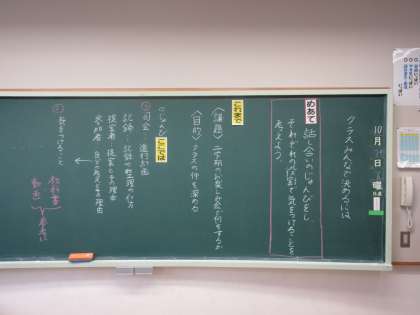 10月 日 曜
クラスみんなで決めるには
めあて
話し合いのじゅんびをし、
それぞれの役割で気をつけることを
考えよう
これまで
〈議題〉二学期のお楽しみ会で何をするか
〈目的〉クラスの仲を深める
ここでは
じゅんび
①司会 進行計画
記録 記録や整理の仕方
提案者 提案とその理由
参加者 自分の考えとその理由
気をつけること
教科書
動画
参考に